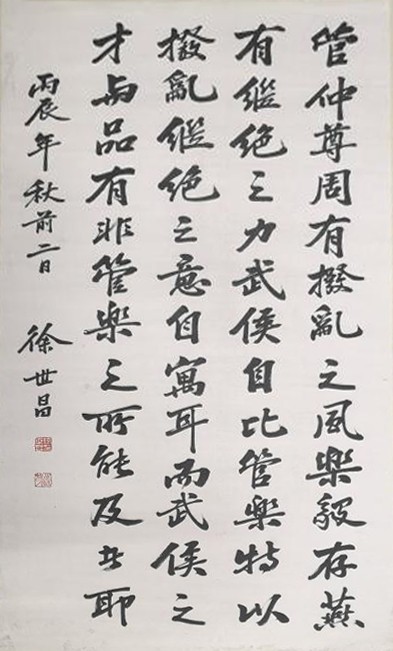 管仲尊周有撥亂之風樂毅存燕
有繼絕之力武侯自比管樂特以
撥亂繼絕之意自寓耳而武侯之
才與品有非管樂之所能及者耶
丙辰年秋前二日
徐世昌